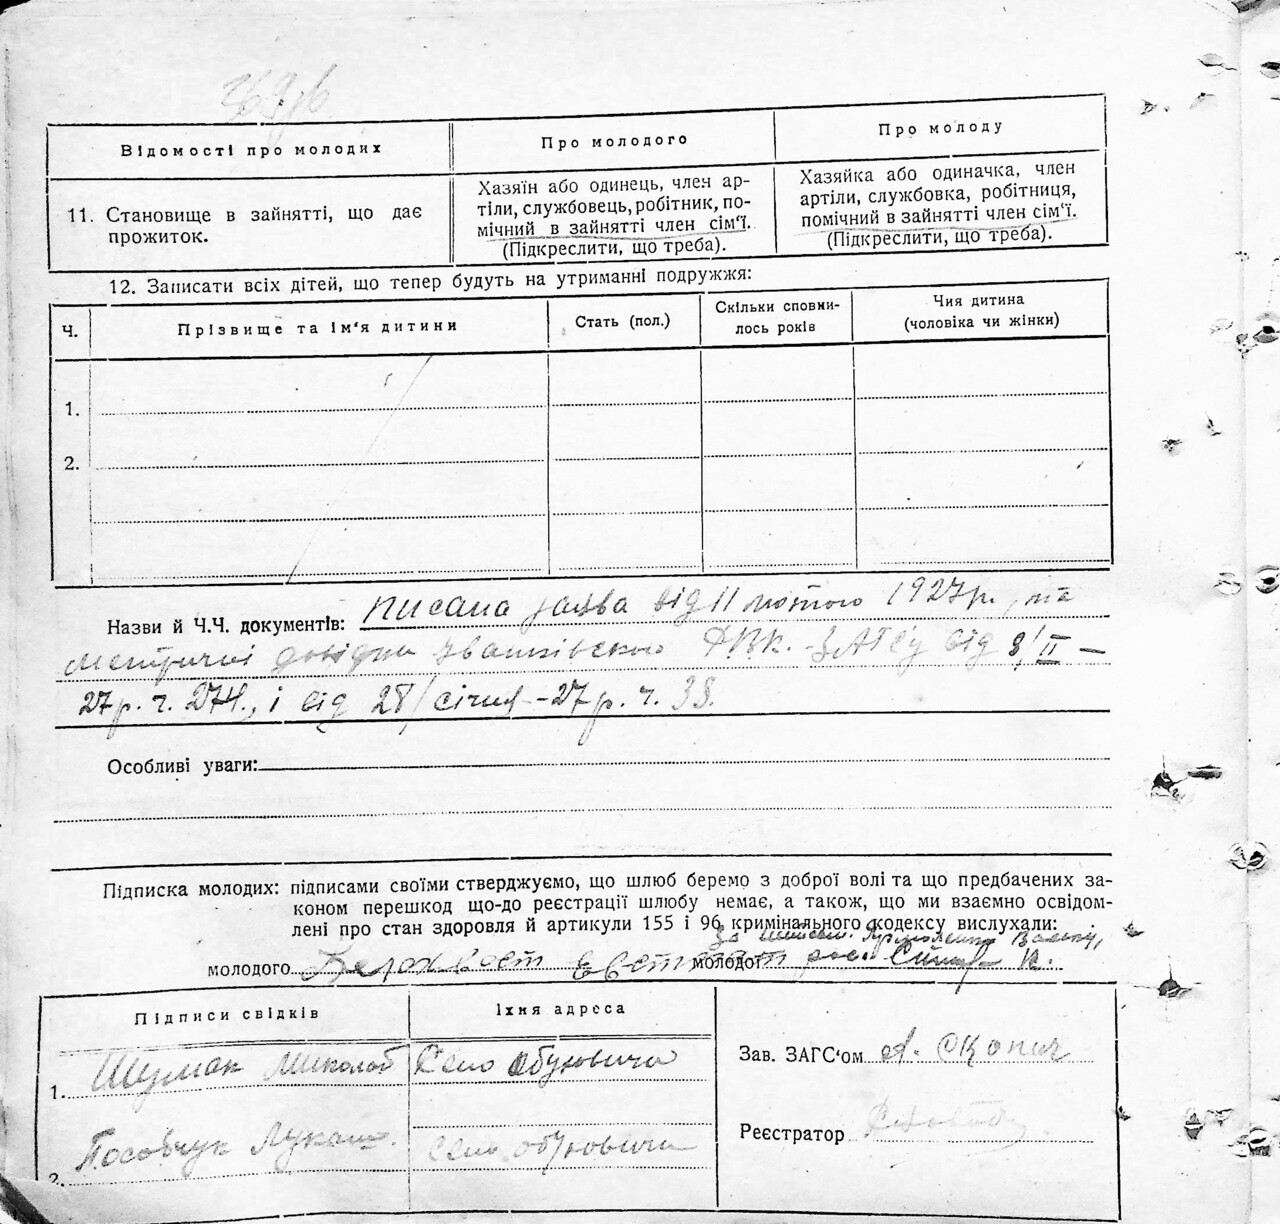 369зв
Відомості про молодих
Про молодого
Про молоду
11. Становище в зайнятті, що дає
прожиток.
Хазяїн або одинець, член ар-
тіли, службовець, робітник, по-
мічний в зайнятті член сім'ї.
(Підкреслити, що треба).
Хазяйка або одиначка, член
артіли, службовка, робітниця,
помічний в зайнятті член сім'ї.
(Підкреслити, що треба).
12. Записати всіх дітей, що тепер будуть на утриманні подружжя:
Ч.
Прізвище та ім'я дитини
Стать (пол.)
Скільки сповни-
лось років
Чия дитина
(чоловіка чи жінки)
1.
2.
Назви й Ч.Ч. документів: писана заява від 11 лютого 1927 р., та
метричні довідки Іванківського РВК. ЗАГС'у від 8/II —
27 р. ч. 274., і від 28/січня - 27 р. ч. 33.
Особливі уваги:
Підписка молодих: підписами своїми стверджуємо, що шлюб беремо з доброї волі та що предбачених за-
коном перешкод що-до реєстрації шлюбу немає, а також, що ми взаємно освідом-
лені про стан здоровля й артикули 155 і 96 кримінального кодексу вислухали:
За
молодого Белохвост Евстрат молодої
Підписи свідків
Їхня адреса
1. Шумак Миколай Село Обуховичи
2. Посовчук Лукаш. село Обуховичи
Зав. ЗАГС'ом А. Скопич
Реєстратор